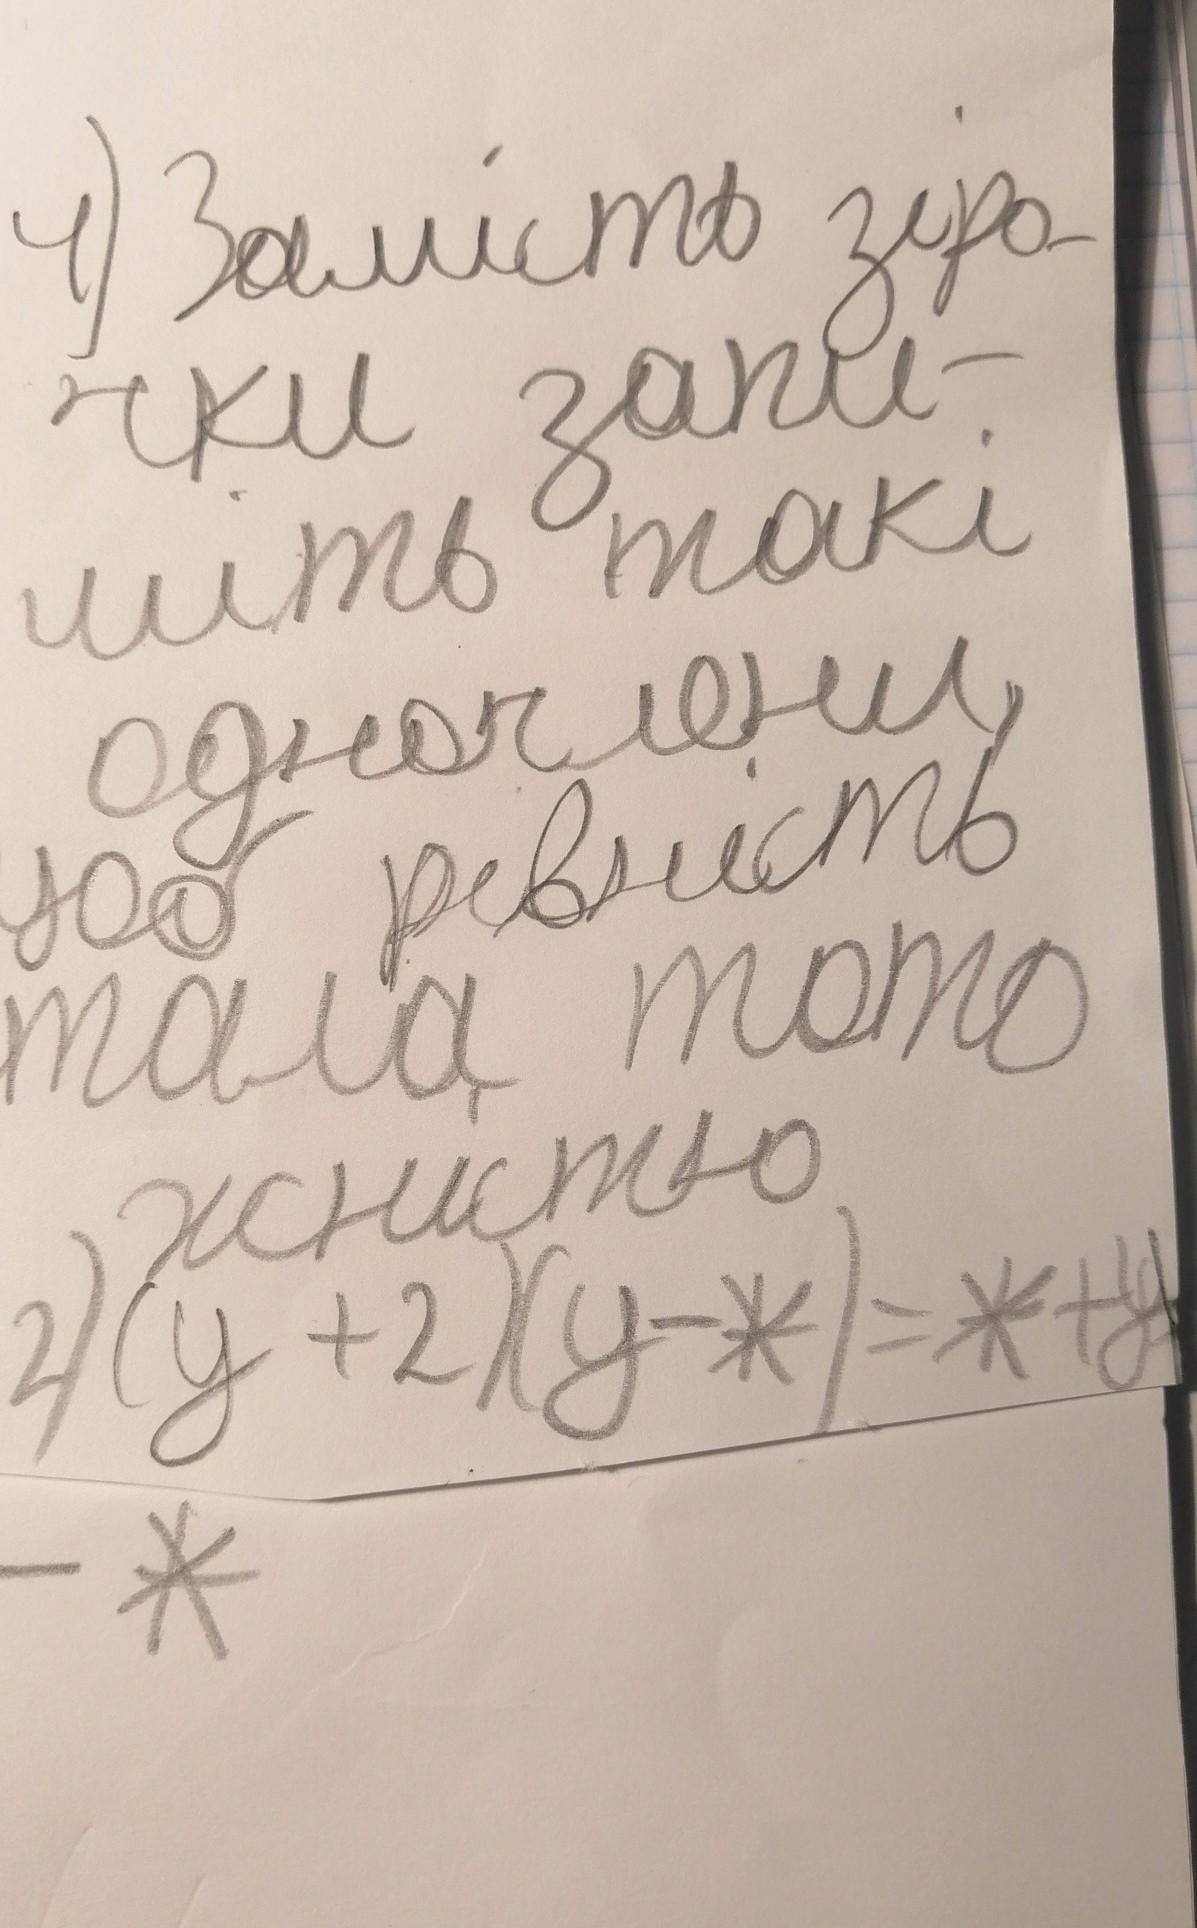 4) Замість зіро-
чки запи-
шіть такі
одночлени,
щоб рівність
тала тото
жністю
2) (y + 2)(y - *) = * + y
- *